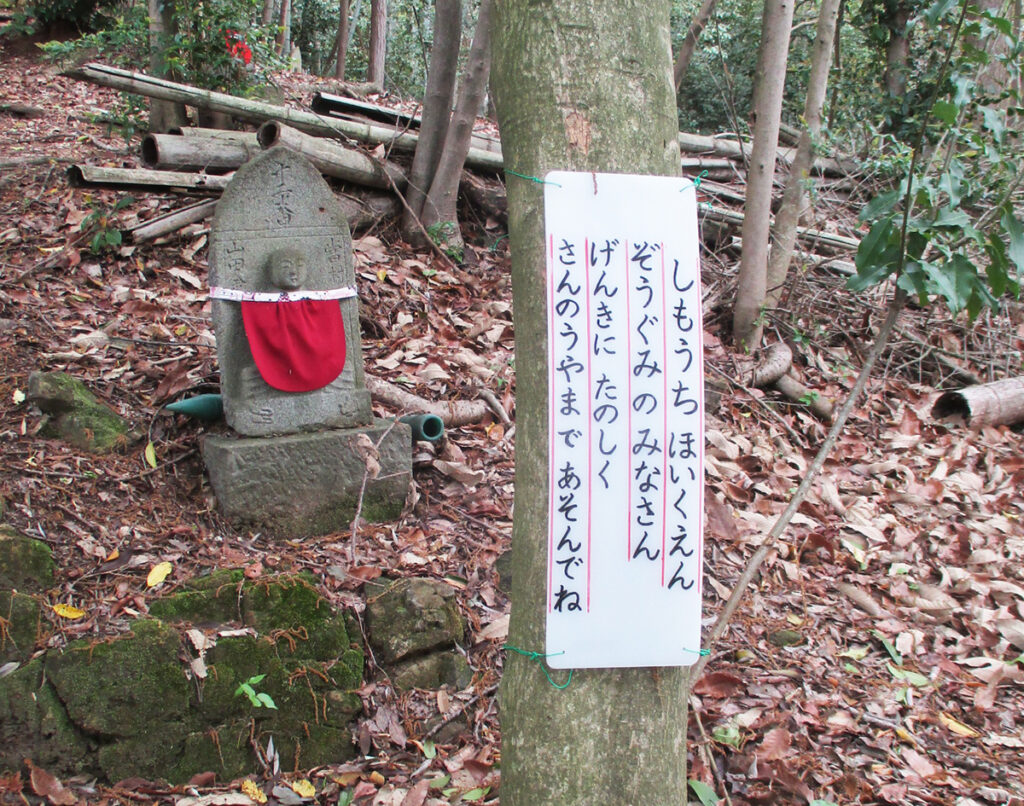 しもうち ほいくえん
ぞうぐみ の みなさん
げんきに たのしく
さんのうやまで あそんでね